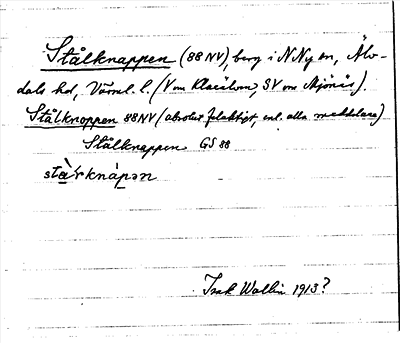 Stålknappen (88 NV), berg i N Ny sn, Älv-
dals hd, Värml. l. (V om Klarälven, SV om Mjönäs).
Stålknoppen 88 NV (absolut felaktigt, enl. alla meddelare)
Stålknappen GS 88
stàrknápən
Isak Wallin 1913?